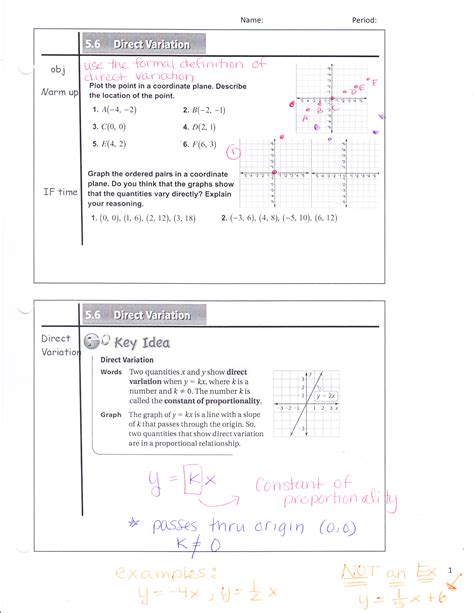 Name: Period:
5.6 Direct Variation
obj
use the formal definition of
direct variation
Warm up
Plot the point in a coordinate plane. Describe
the location of the point.
1. A(−4, −2) 2. B(−2, −1)
3. C(0, 0) 4. D(2, 1)
5. E(4, 2) 6. F(6, 3)
A B C D E F
B
1
IF time
Graph the ordered pairs in a coordinate
plane. Do you think that the graphs show
that the quantities vary directly? Explain
your reasoning.
1. (0, 0), (1, 6), (2, 12), (3, 18) 2. (−3, 6), (4, 8), (−5, 10), (6, 12)
5.6 Direct Variation
Direct
Variation
Key Idea
Direct Variation
Words Two quantities x and y show direct
variation when y = kx, where k is a
number and k ≠ 0. The number k is
called the constant of proportionality.
Graph The graph of y = kx is a line with a slope
of k that passes through the origin. So,
two quantities that show direct variation
are in a proportional relationship.
y
3
2
y = 2x
−3 −2 −1 1 2 3 x
y = kx
constant of
proportionality
* passes thru origin (0,0)
k ≠ 0
1
examples:
y = -4x, y = 1/2 x
NOT an Ex
y = 1/2 x + 6